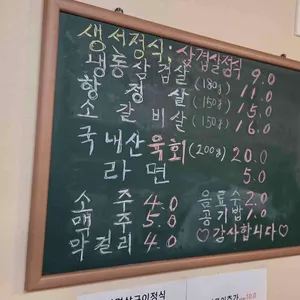 생선정식, 삼겹살정식 9.0
냉동삼겹살 (180g) 11.0
항정살 (150g) 15.0
소갈비살 (150g) 16.0
국내산육회 (200g) 20.0
라면 5.0
소주 4.0 음료수 2.0
맥주 5.0 공기밥 1.0
막걸리 4.0 ♡감사합니다♡